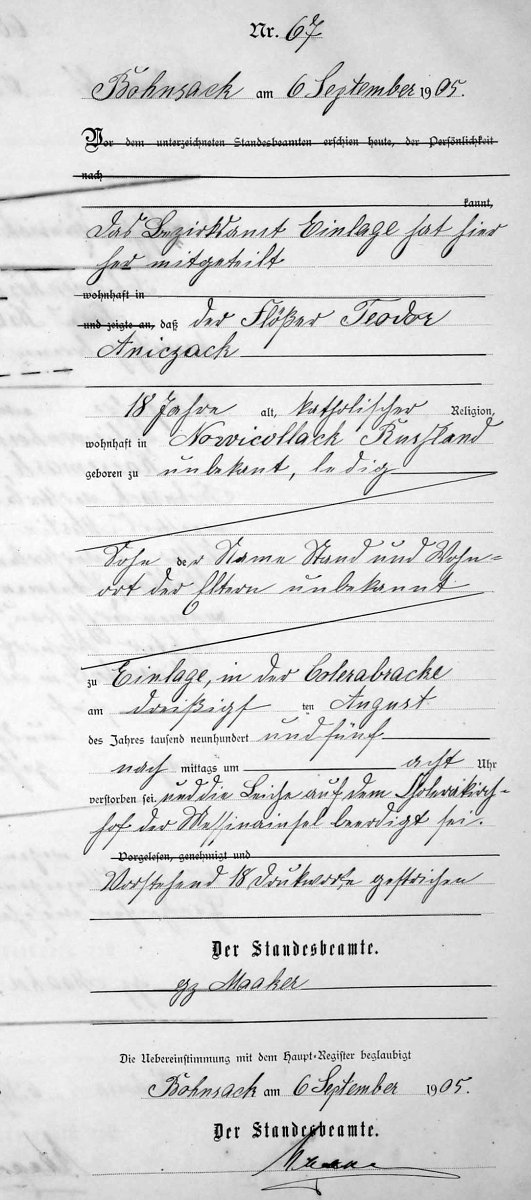 Nr. 67
Bohnsack am 6 September 1905.
Vor dem unterzeichneten Standesbeamten erschien heute, der Persönlichkeit
nach
kannt,
Das Bezirksamt Einlage hat hier
her mitgeteilt
wohnhaft in
und zeigte an, daß der Flößer Teodor
Aniczack
18 Jahre alt, katholischer Religion,
wohnhaft in Nowicollack Russland
geboren zu unbekant, ledig
Sohn der Name Stand und Wohn-
ort der Eltern unbekannt
zu Einlage, in der Colerabracke
am dreißigs ten August
des Jahres tausend neunhundert und fünf
nach mittags um acht Uhr
verstorben sei und die Leiche auf dem Cholerakirch-
hof der Messinainsel beerdigt sei.
Vorgelesen, genehmigt und
Vorstehend 18 Drukworte gestrichen
Der Standesbeamte.
gz Maaker
Die Uebereinstimmung mit dem Haupt-Register beglaubigt
Bohnsack am 6 September 1905.
Der Standesbeamte.